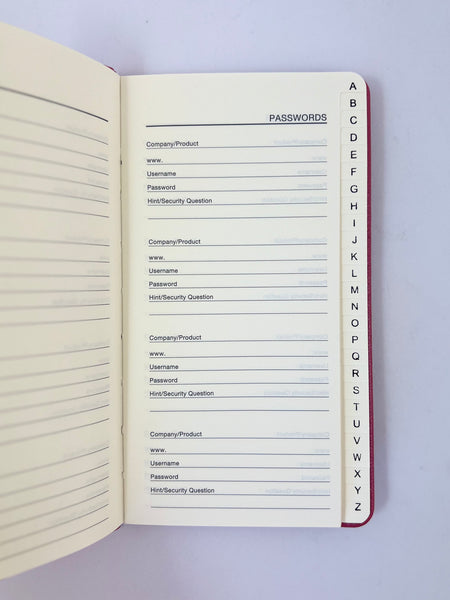 PASSWORDS
Company/Product
www.
Username
Password
Hint/Security Question
Company/Product
www.
Username
Password
Hint/Security Question
Company/Product
www.
Username
Password
Hint/Security Question
Company/Product
www.
Username
Password
Hint/Security Question
A
B
C
D
E
F
G
H
I
J
K
L
M
N
O
P
Q
R
S
T
U
V
W
X
Y
Z